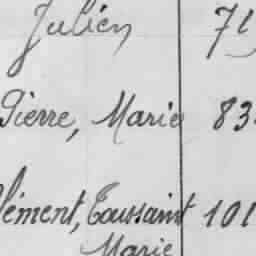 Julien 71
Pierre, Marie 83
Clément, Toussaint 101
Marie